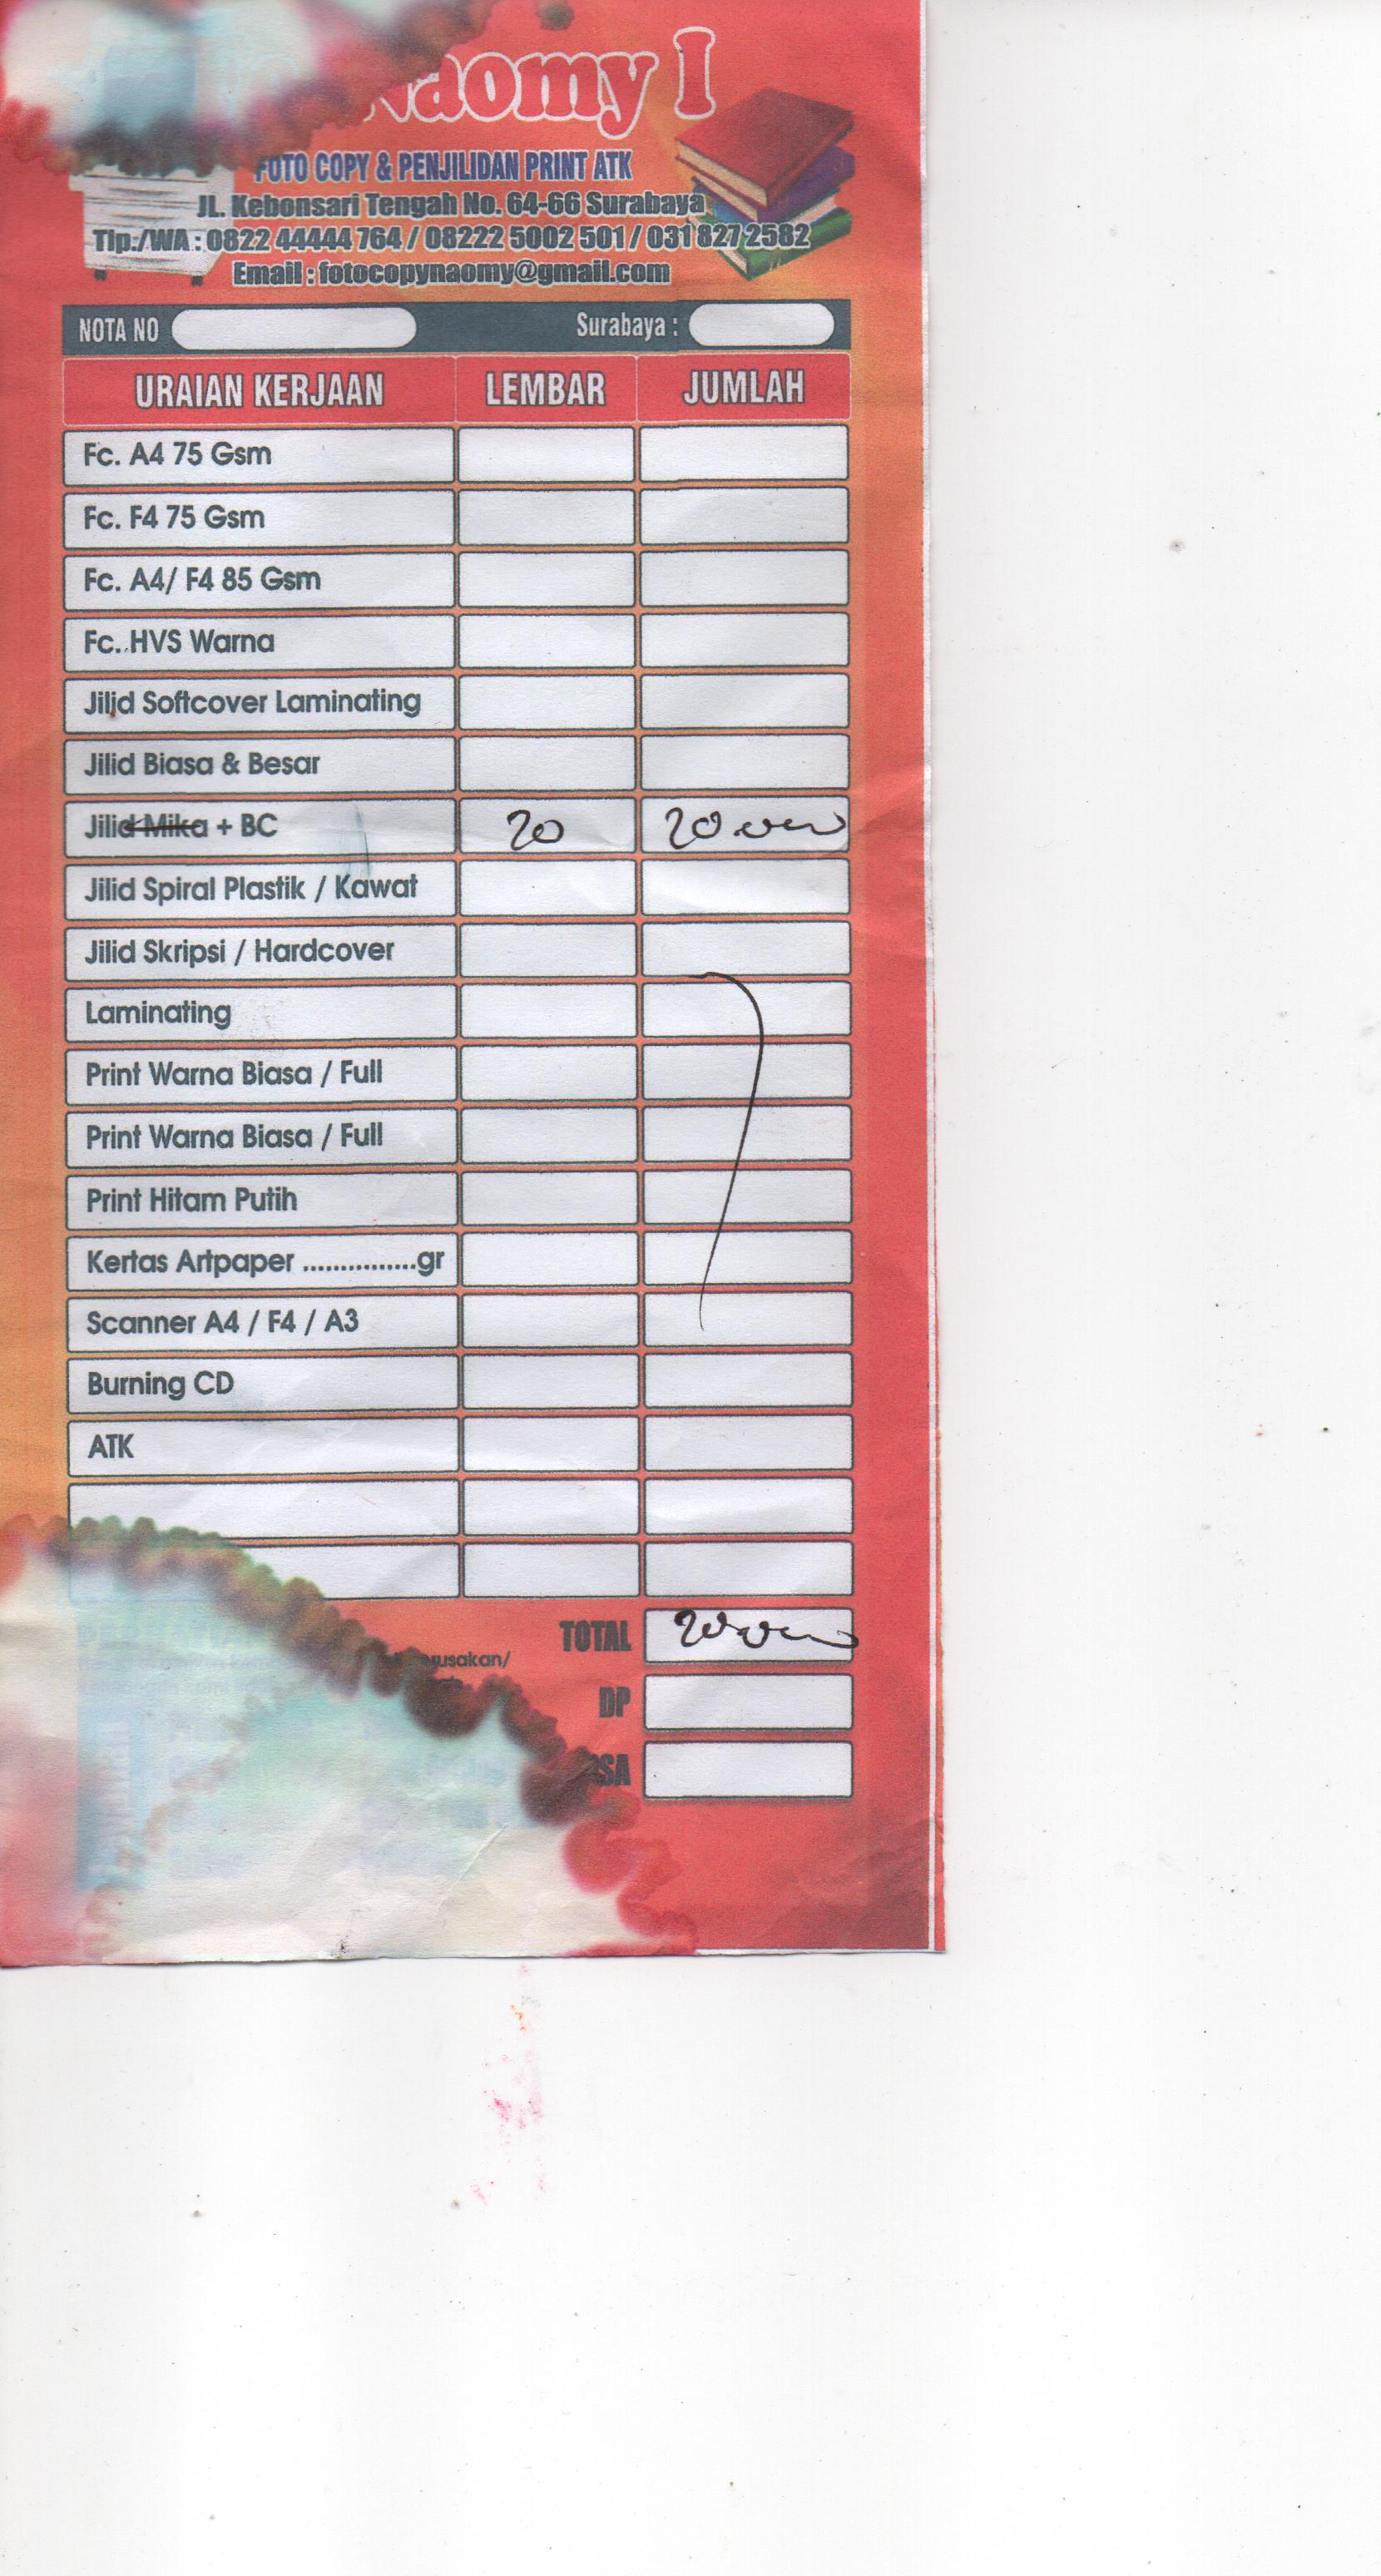 Naomy 1
FOTO COPY & PENJILIDAN PRINT ATK
JL. Kebonsari Tengah No. 64-66 Surabaya
Tlp./WA : 0822 44444 764 / 08222 5002 501 / 031 827 2582
Email : fotocopynaomy@gmail.com
NOTA NO Surabaya :
URAIAN KERJAAN LEMBAR JUMLAH
Fc. A4 75 Gsm
Fc. F4 75 Gsm
Fc. A4/ F4 85 Gsm
Fc. HVS Warna
Jilid Softcover Laminating
Jilid Biasa & Besar
Jilid Mika + BC 20 20.000
Jilid Spiral Plastik / Kawat
Jilid Skripsi / Hardcover
Laminating
Print Warna Biasa / Full
Print Warna Biasa / Full
Print Hitam Putih
Kertas Artpaper ...............gr
Scanner A4 / F4 / A3
Burning CD
ATK
TOTAL 20.000
usakan/
DP
SA